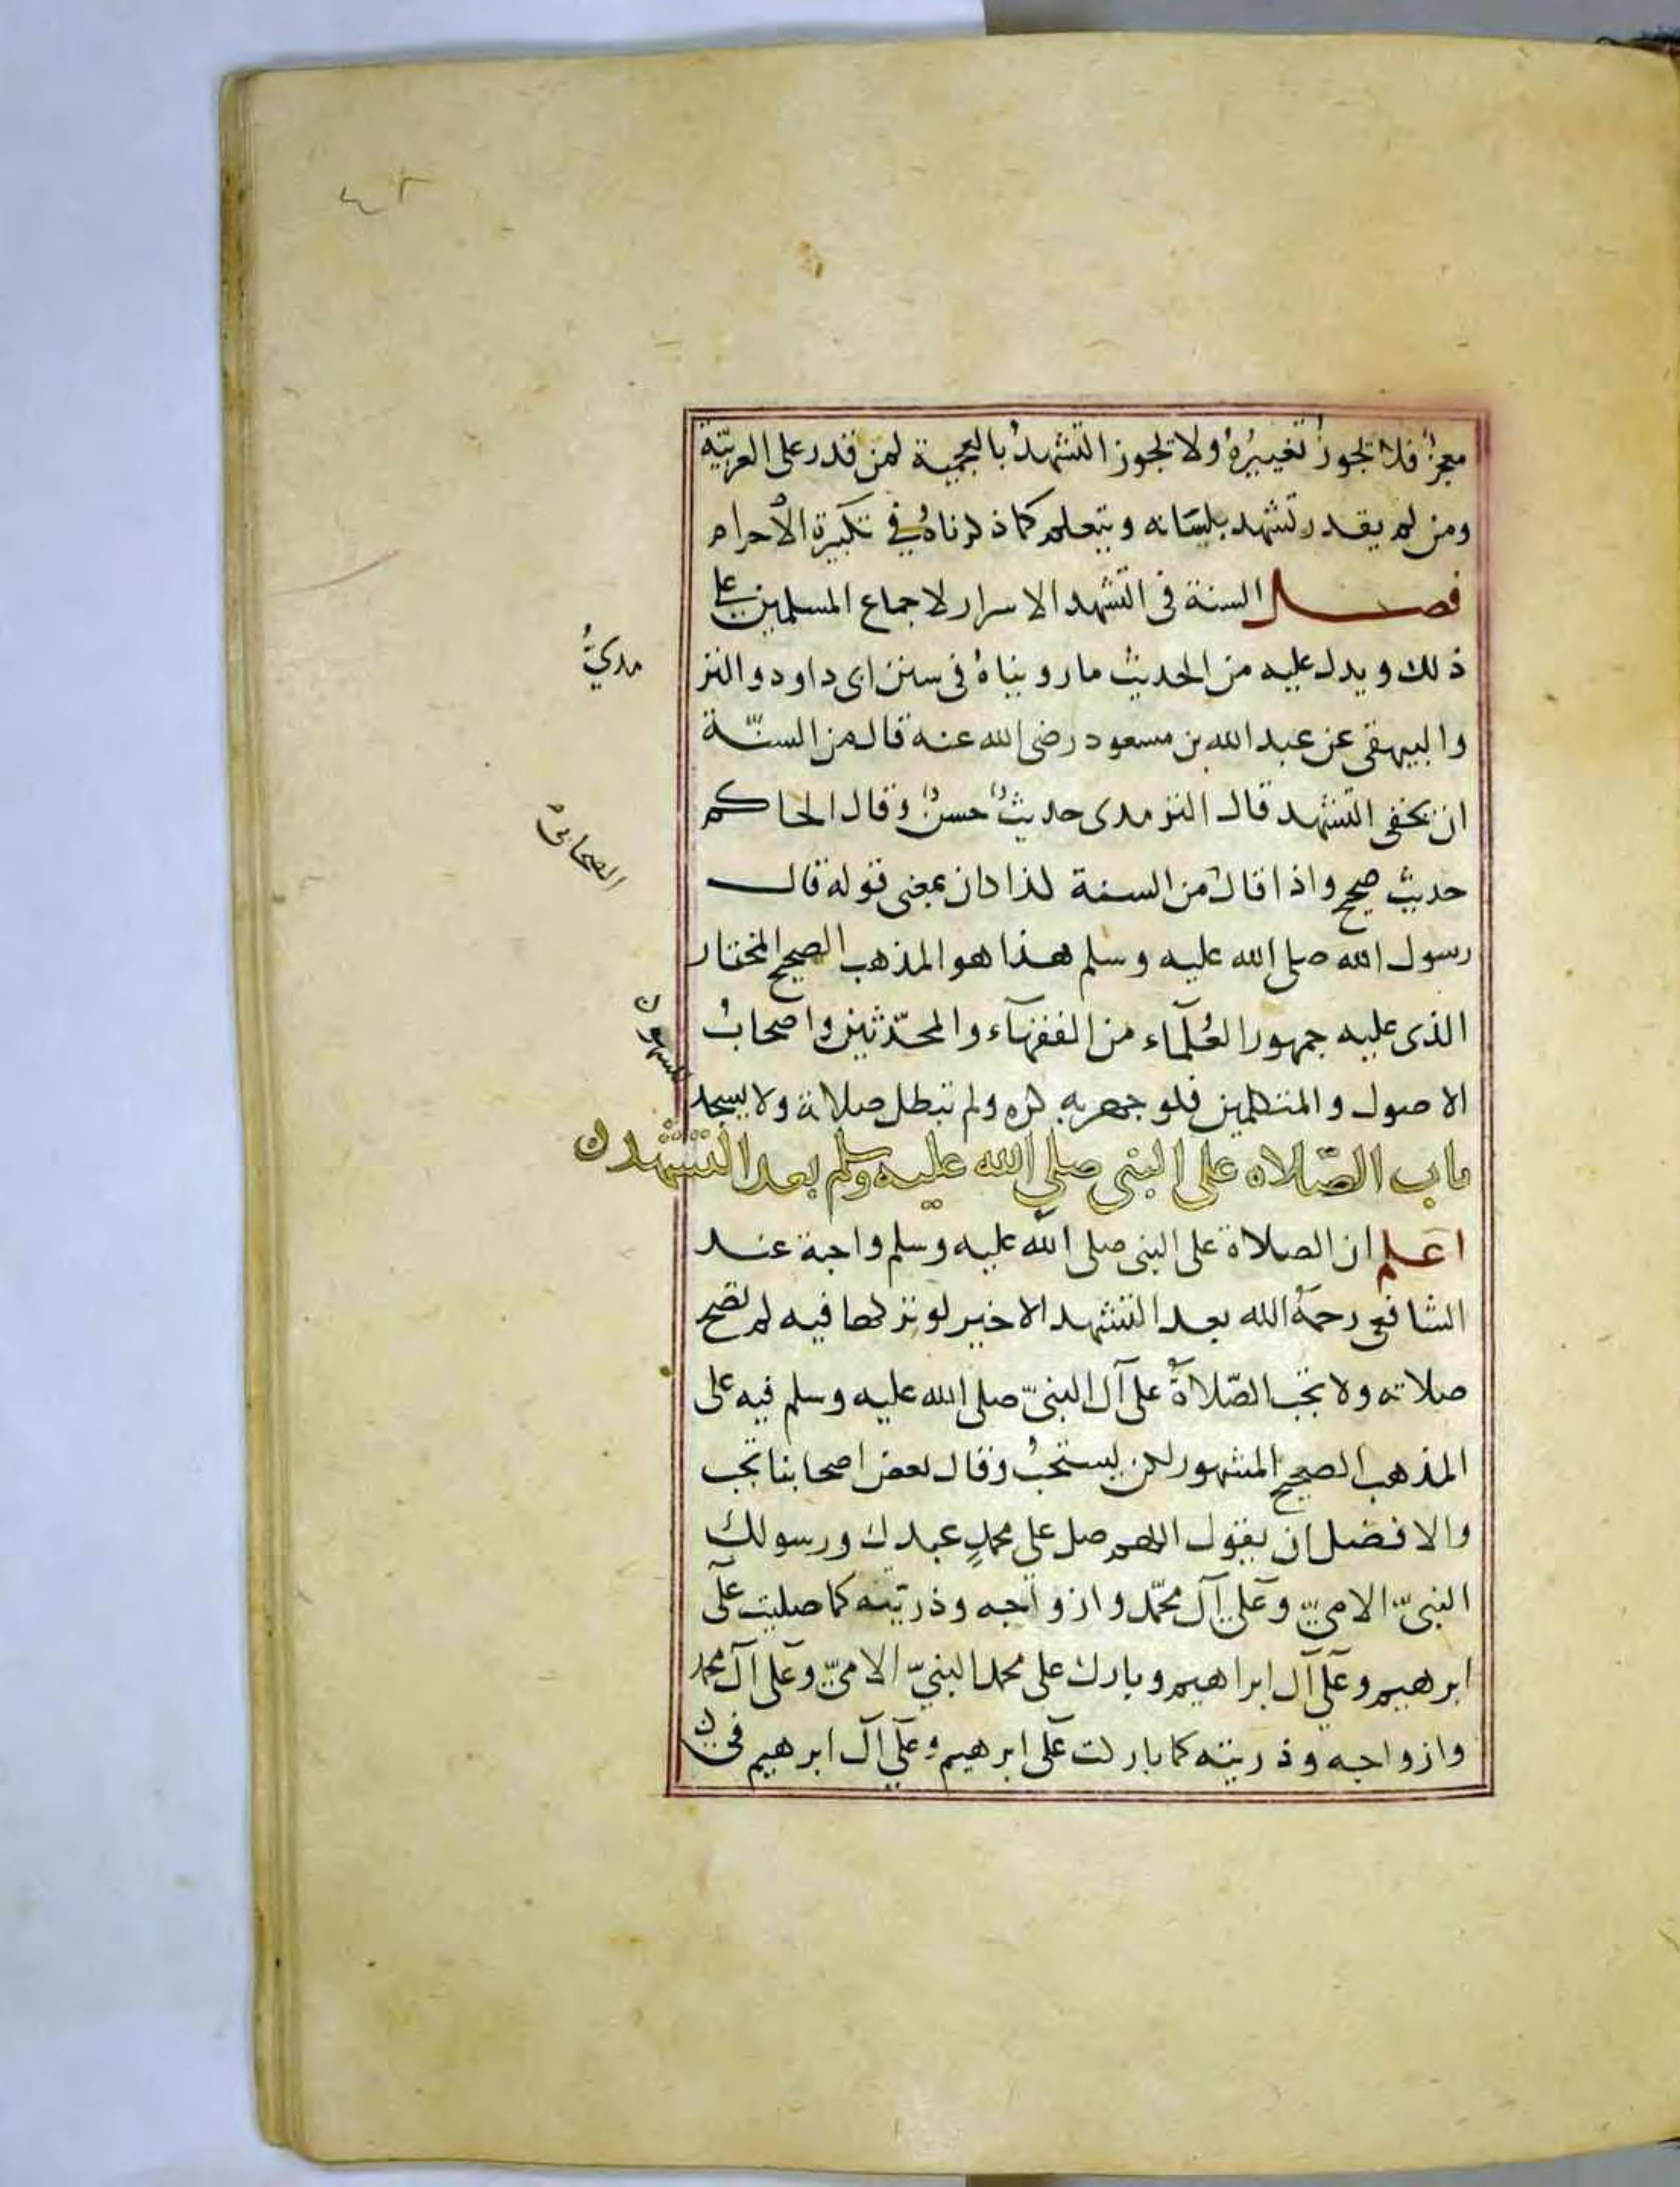 معجز فلا تجوز تغييره ولا تجوز التشهد بالعجمية لمن قدر على العربية
ومن لم يقدر تشهد بلسانه ويتعلم كما ذكرناه في تكبيرة الاحرام
فصل السنة في التشهد الاسرار لاجماع المسلمين على
ذلك ويدل عليه من الحديث ما رويناه في سنن ابى داود والتر
مديّ
والبيهقى عن عبد الله بن مسعود رضى الله عنه قال من السنّة
ان يخفى التشهد قال الترمدى حديث حسن وقال الحاكم
حديث صحيح واذا قال من السنة كذا كان بمعنى قوله قال
الصحابى
رسول الله صلى الله عليه وسلم هذا هو المذهب الصحيح المختار
الذى عليه جمهور العُلمآء من الفقهآء والمحدّثين واصحاب
الاصول والمتكلمين فلو جهر به كره ولم تبطل صلاته ولا يسجد
للسهو ن
باب الصّلاه على النبى صلي الله عليه وسلم بعد التشهد ن
اعلم ان الصلاة على النبى صلى الله عليه وسلم واجبة عند
الشافعى رحمهُ الله بعد التشهد الاخير لو تركها فيه لم تصح
صلاته ولا تجب الصّلاةُ على آل النبىّ صلى الله عليه وسلم فيه على
المذهب الصحيح المشهور لكن يستحبُ وقال بعض اصحابنا تجب
والافضل ان يقول اللهم صل على محمدٍ عبدك ورسولك
النبىّ الامىّ وعلى آل محمّد وازواجه وذريّته كما صليت على
ابرهيم وعلى آل ابراهيم وبارك على محمد النبيّ الامىّ وعلى آل محمد
وازواجه وذريته كما باركت على ابرهيم وعلى آل ابرهيم فى ن